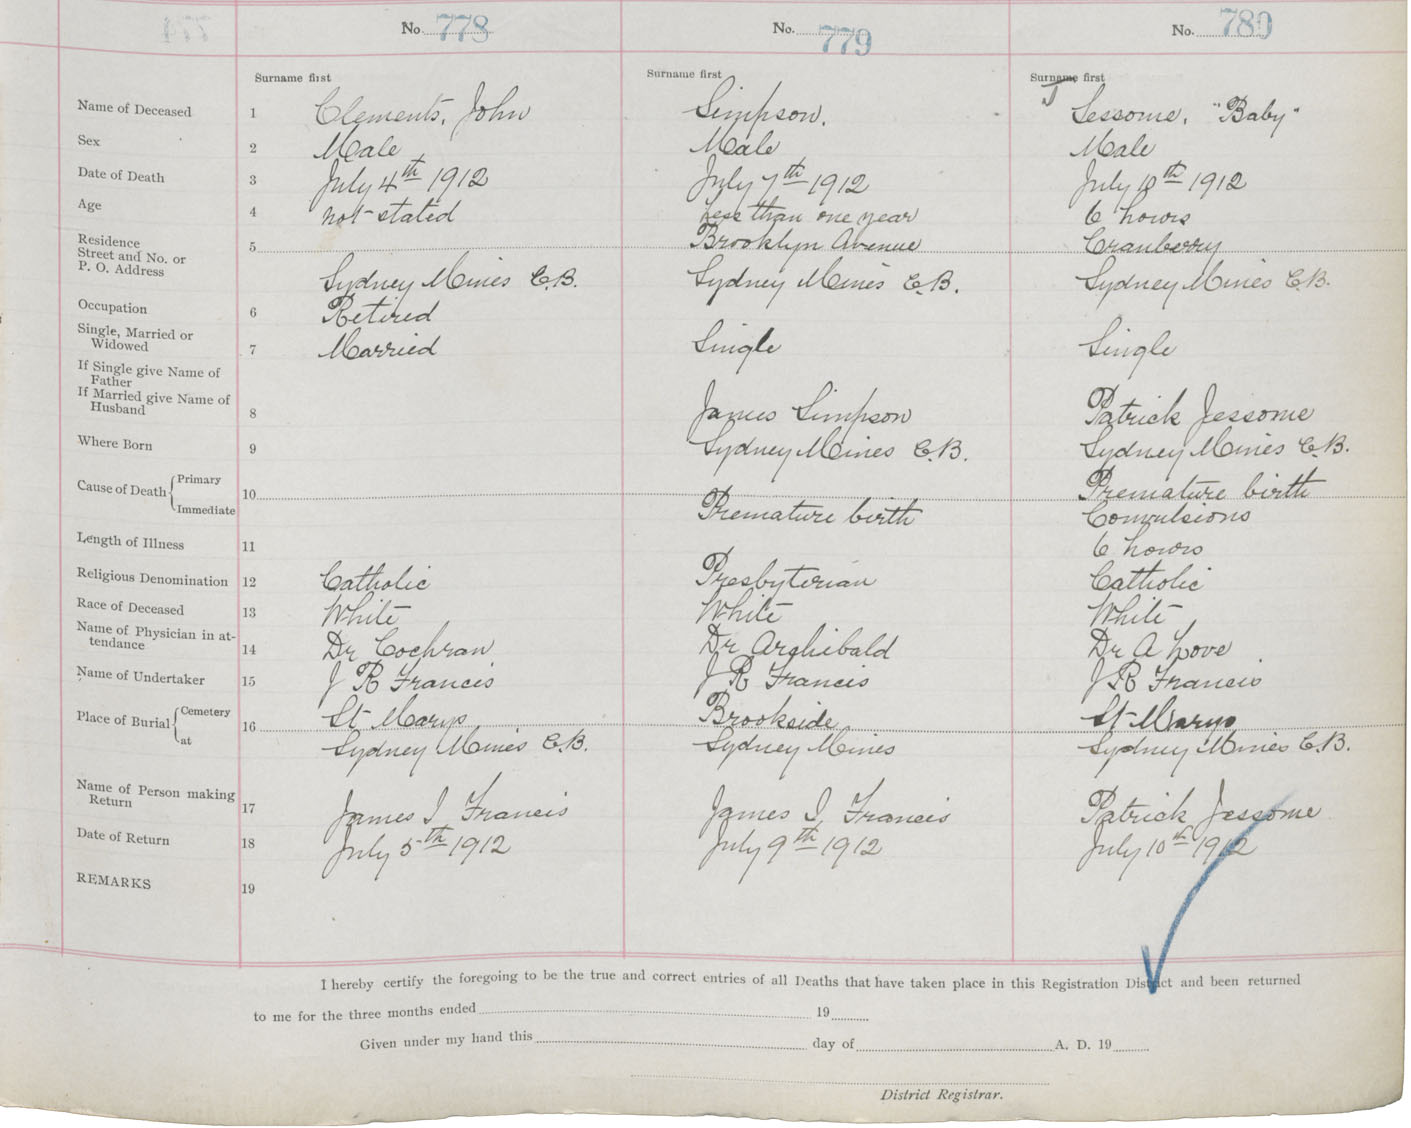 No. 778 No. 779 No. 780
Surname first Surname first Surname first
J
Name of Deceased 1 Clements, John Simpson. Sessome, "Baby"
Sex 2 Male Male Male
Date of Death 3 July 4th 1912 July 7th 1912 July 10th 1912
Age 4 not stated Less than one year 6 hours
Residence 5 Brooklyn Avenue Cranberry
Street and No. or
P. O. Address Sydney Mines C.B. Sydney Mines C.B. Sydney Mines C.B.
Occupation 6 Retired
Single, Married or
Widowed 7 Married Single Single
If Single give Name of
Father
If Married give Name of
Husband 8 James Simpson Patrick Jessome
Where Born 9 Sydney Mines C.B. Sydney Mines C.B.
Cause of Death { Primary 10 Premature birth
Immediate Premature birth Convulsions
Length of Illness 11 6 hours
Religious Denomination 12 Catholic Presbyterian Catholic
Race of Deceased 13 White White White
Name of Physician in at-
tendance 14 Dr Cochran Dr Archibald Dr A Love
Name of Undertaker 15 J R Francis J R Francis J R Francis
Place of Burial { Cemetery 16 St Marys Brookside St Marys
at Sydney Mines C.B. Sydney Mines Sydney Mines C.B.
Name of Person making
Return 17 James I Francis James I, Francis Patrick Jessome
Date of Return 18 July 5th 1912 July 9th 1912 July 10th 1912
REMARKS 19
I hereby certify the foregoing to be the true and correct entries of all Deaths that have taken place in this Registration District and been returned
to me for the three months ended 19
Given under my hand this day of A. D. 19
District Registrar.